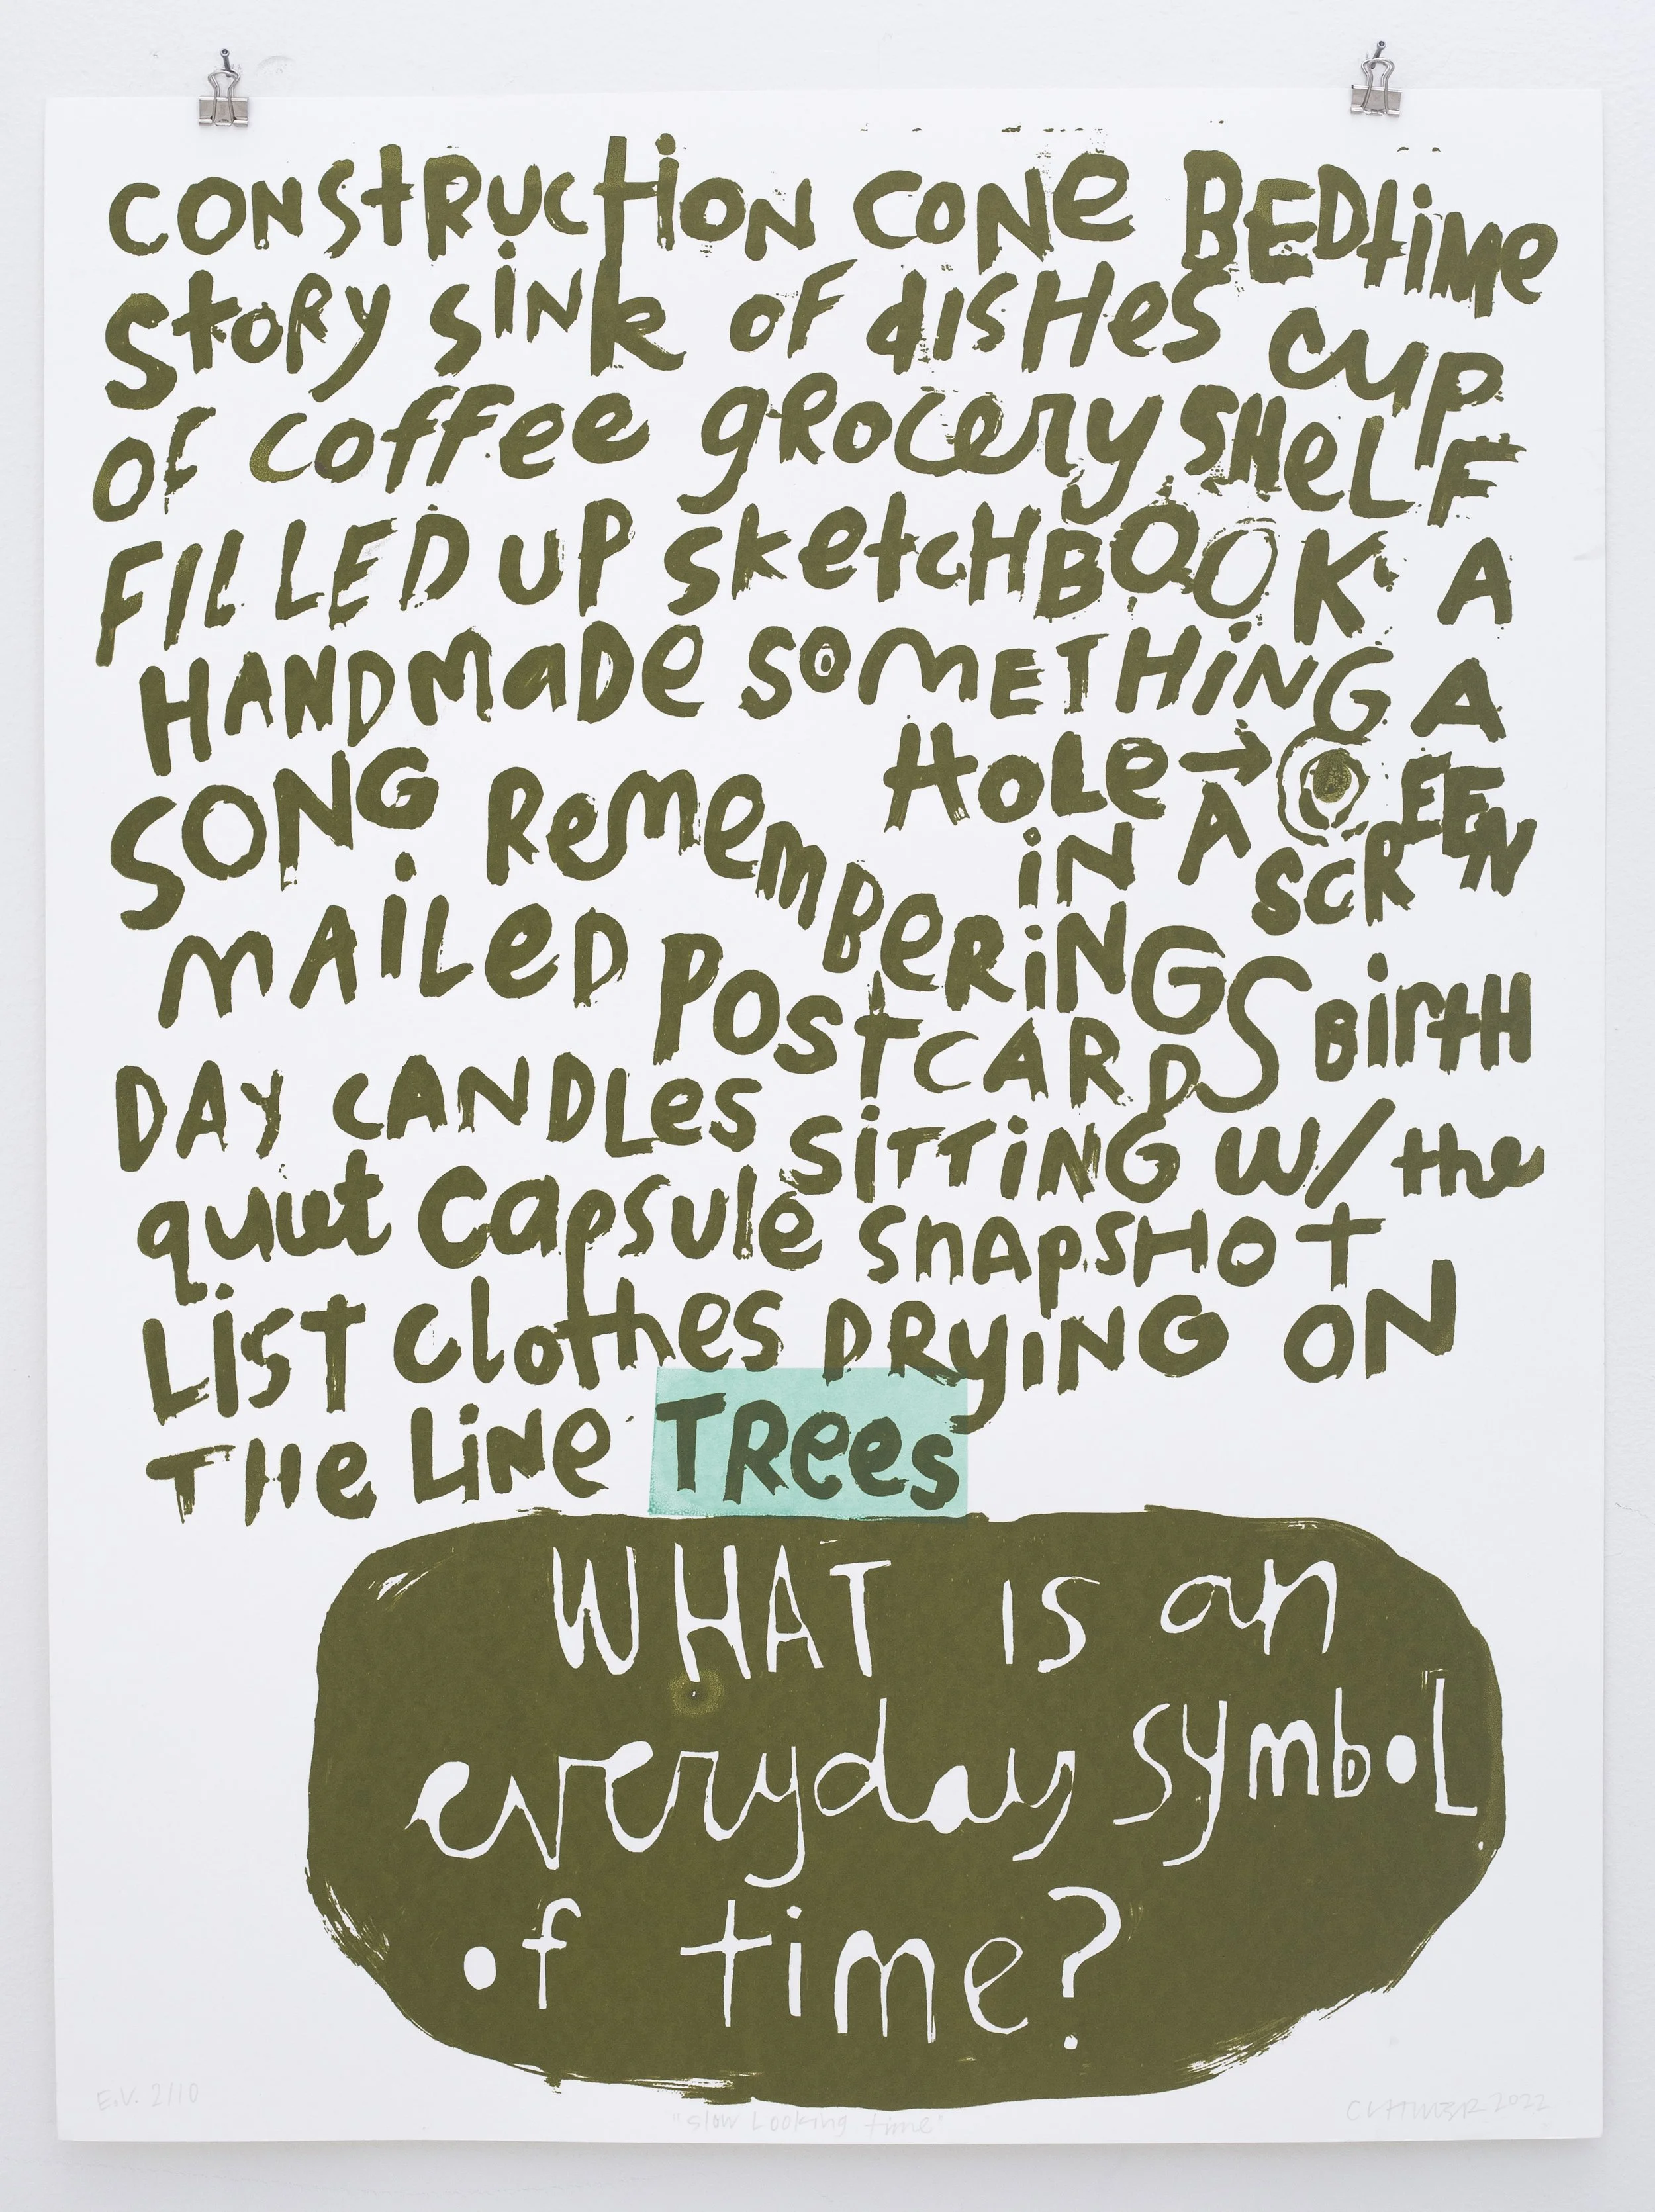 CONSTRUCTION CONE BEDTIME
STORY SINK OF DISHES CUP
OF COFFEE GROCERY SHELF
FILLED UP SKETCHBOOK A
HANDMADE SOMETHING A
SONG REMEMBERINGS
HOLE →
IN A SCREEN
MAILED POSTCARDS BIRTH
DAY CANDLES SITTING W/ the
quiet Capsule SNAPSHOT
LIST Clothes DRYING ON
THE LINE TREES
WHAT IS an
everyday symbol
of time?
E.V. 2/10
"Slow Looking time"
2022